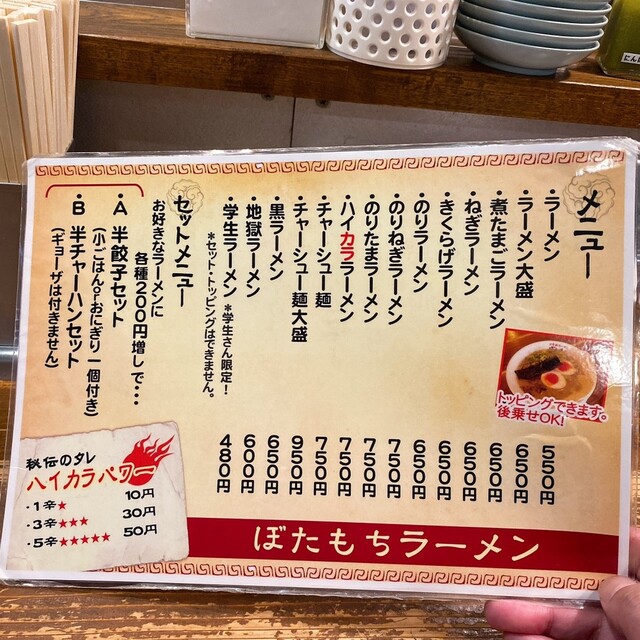 メニュー
・ラーメン 550円
・ラーメン大盛 650円
・煮たまごラーメン 650円
・ねぎラーメン 650円
・きくらげラーメン 650円
・のりラーメン 650円
・のりねぎラーメン 750円
・のりたまラーメン 750円
・ハイカララーメン 750円
・チャーシュー麺 750円
・チャーシュー麺大盛 950円
・黒ラーメン 650円
・地獄ラーメン 600円
・学生ラーメン *学生さん限定! 480円
*セット・トッピングはできません。
トッピングできます。
後乗せOK!
セットメニュー
お好きなラーメンに
各種200円増しで・・・
・A 半餃子セット
(小ごはんorおにぎり一個付き)
・B 半チャーハンセット
(ギョーザは付きません)
秘伝のタレ
ハイカラパワー
・1辛★ 10円
・3辛★★★ 30円
・5辛★★★★★ 50円
ぼたもちラーメン